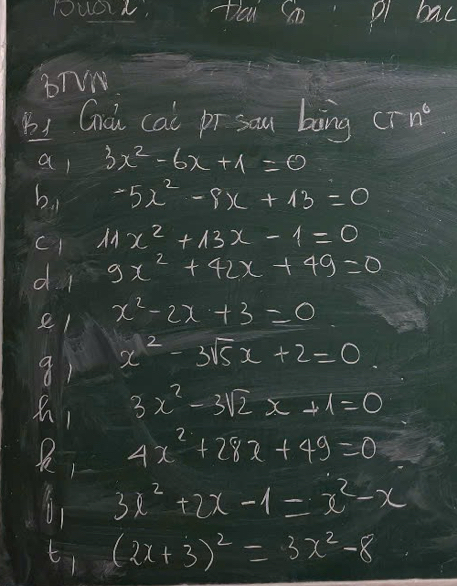 Buổi 2: Đại Số: pt bậc
BTVN
B1 Giải các pt sau bằng CT nº
a, 3x² - 6x + 1 = 0
b, -5x² - 8x + 13 = 0
c, 11x² + 13x - 1 = 0
d, 9x² + 42x + 49 = 0
e, x² - 2x + 3 = 0
g, x² - 3√5x + 2 = 0.
h, 3x² - 3√2 x + 1 = 0
k, 4x² + 28x + 49 = 0
i, 3x² + 2x - 1 = x² - x
t, (2x + 3)² = 3x² - 8